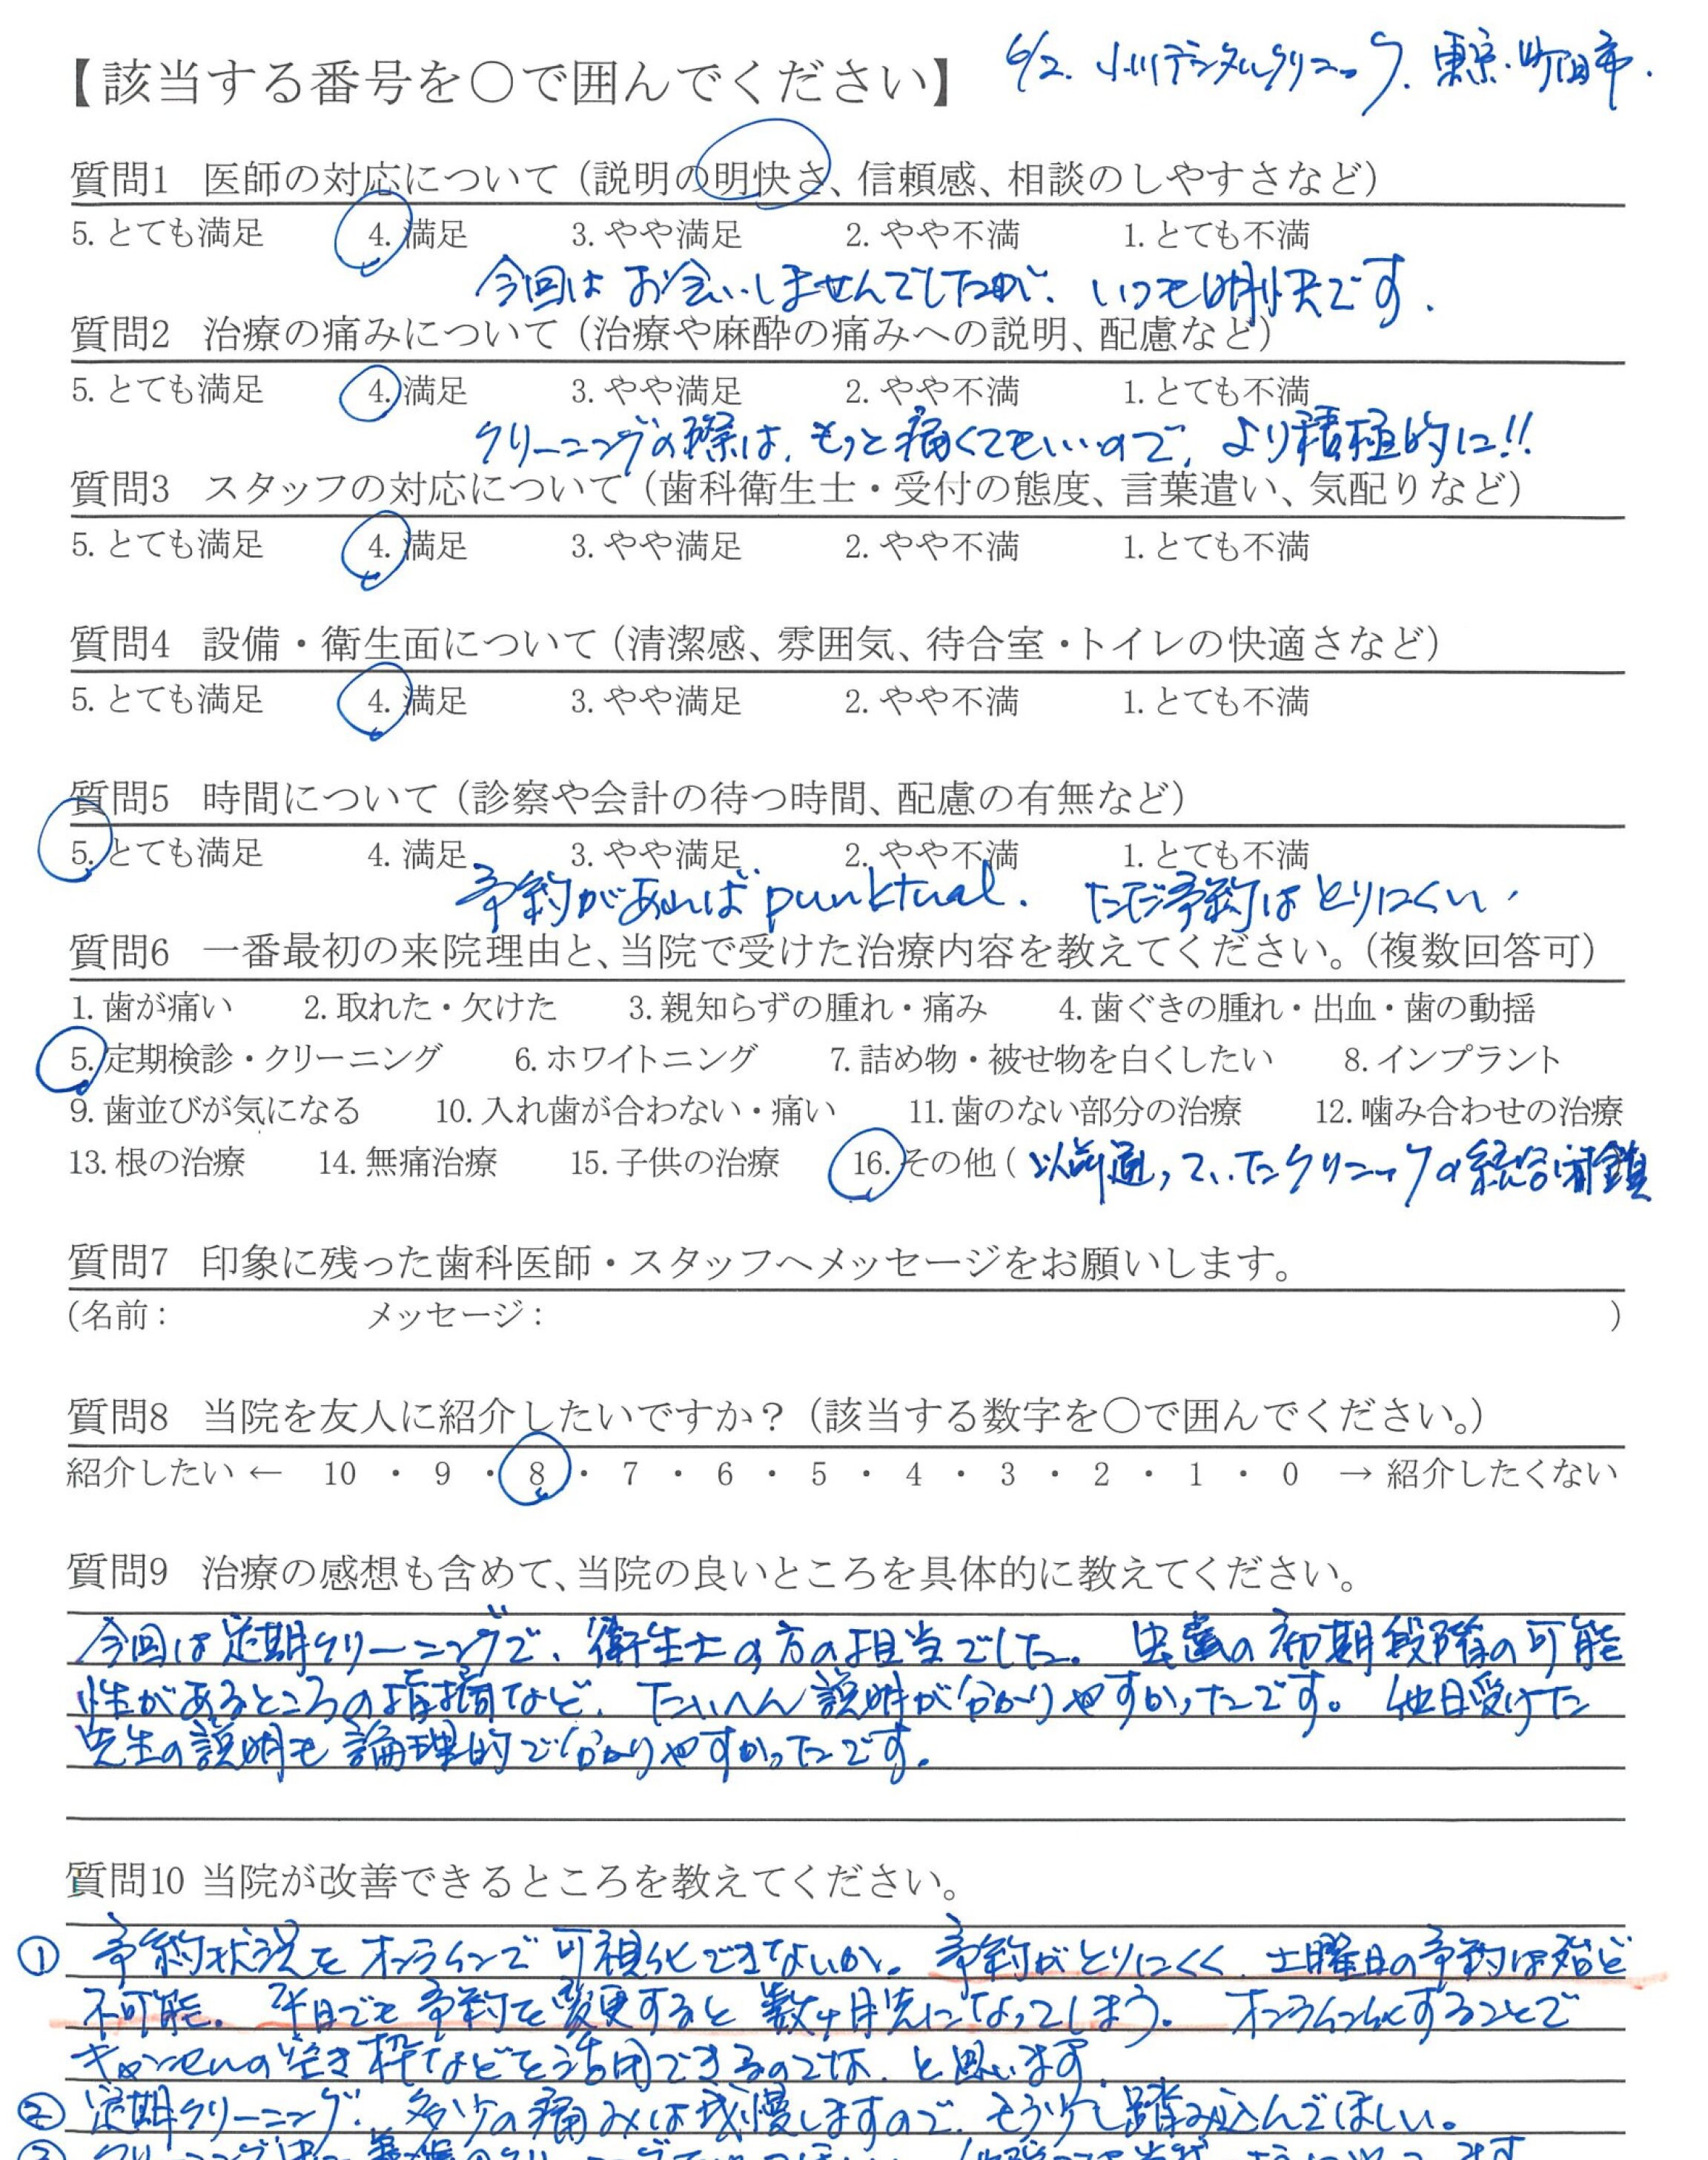 【該当する番号を〇で囲んでください】 6/2. 小川デンタルクリニック. 東京・町田市.
質問1 医師の対応について（説明の明快さ、信頼感、相談のしやすさなど）
5. とても満足 4. 満足 3. やや満足 2. やや不満 1. とても不満
今回は お会いしませんでしたが、いつも明快です.
質問2 治療の痛みについて（治療や麻酔の痛みへの説明、配慮など）
5. とても満足 4. 満足 3. やや満足 2. やや不満 1. とても不満
クリーニングの際は、もっと痛くてもいいので、より積極的に!!
質問3 スタッフの対応について（歯科衛生士・受付の態度、言葉遣い、気配りなど）
5. とても満足 4. 満足 3. やや満足 2. やや不満 1. とても不満
質問4 設備・衛生面について（清潔感、雰囲気、待合室・トイレの快適さなど）
5. とても満足 4. 満足 3. やや満足 2. やや不満 1. とても不満
質問5 時間について（診察や会計の待つ時間、配慮の有無など）
5. とても満足 4. 満足 3. やや満足 2. やや不満 1. とても不満
予約があれば punktual. ただ予約はとりにくい.
質問6 一番最初の来院理由と、当院で受けた治療内容を教えてください。（複数回答可）
1. 歯が痛い 2. 取れた・欠けた 3. 親知らずの腫れ・痛み 4. 歯ぐきの腫れ・出血・歯の動揺
5. 定期検診・クリーニング 6. ホワイトニング 7. 詰め物・被せ物を白くしたい 8. インプラント
9. 歯並びが気になる 10. 入れ歯が合わない・痛い 11. 歯のない部分の治療 12. 噛み合わせの治療
13. 根の治療 14. 無痛治療 15. 子供の治療 16. その他（以前通っていたクリニックの統合閉鎖
質問7 印象に残った歯科医師・スタッフへメッセージをお願いします。
(名前： メッセージ： )
質問8 当院を友人に紹介したいですか？（該当する数字を〇で囲んでください。）
紹介したい ← 10 ・ 9 ・ 8 ・ 7 ・ 6 ・ 5 ・ 4 ・ 3 ・ 2 ・ 1 ・ 0 → 紹介したくない
質問9 治療の感想も含めて、当院の良いところを具体的に教えてください。
今回は定期クリーニングで、衛生士の方の担当でした. 虫歯の初期段階の可能
性があるところの指摘など、たいへん説明が分かりやすかったです。他日受けた
先生の説明も論理的で分かりやすかったです。
質問10 当院が改善できるところを教えてください。
① 予約状況をオンラインで可視化できないか。予約がとりにくく、土曜日の予約は殆ど
不可能. 平日でも予約を変更すると数ヶ月先になってしまう. オンライン化することで
キャンセルの空き枠などを活用できるのでは、と思います.
② 定期クリーニング. 多少の痛みは我慢しますので、もう少し踏み込んでほしい.